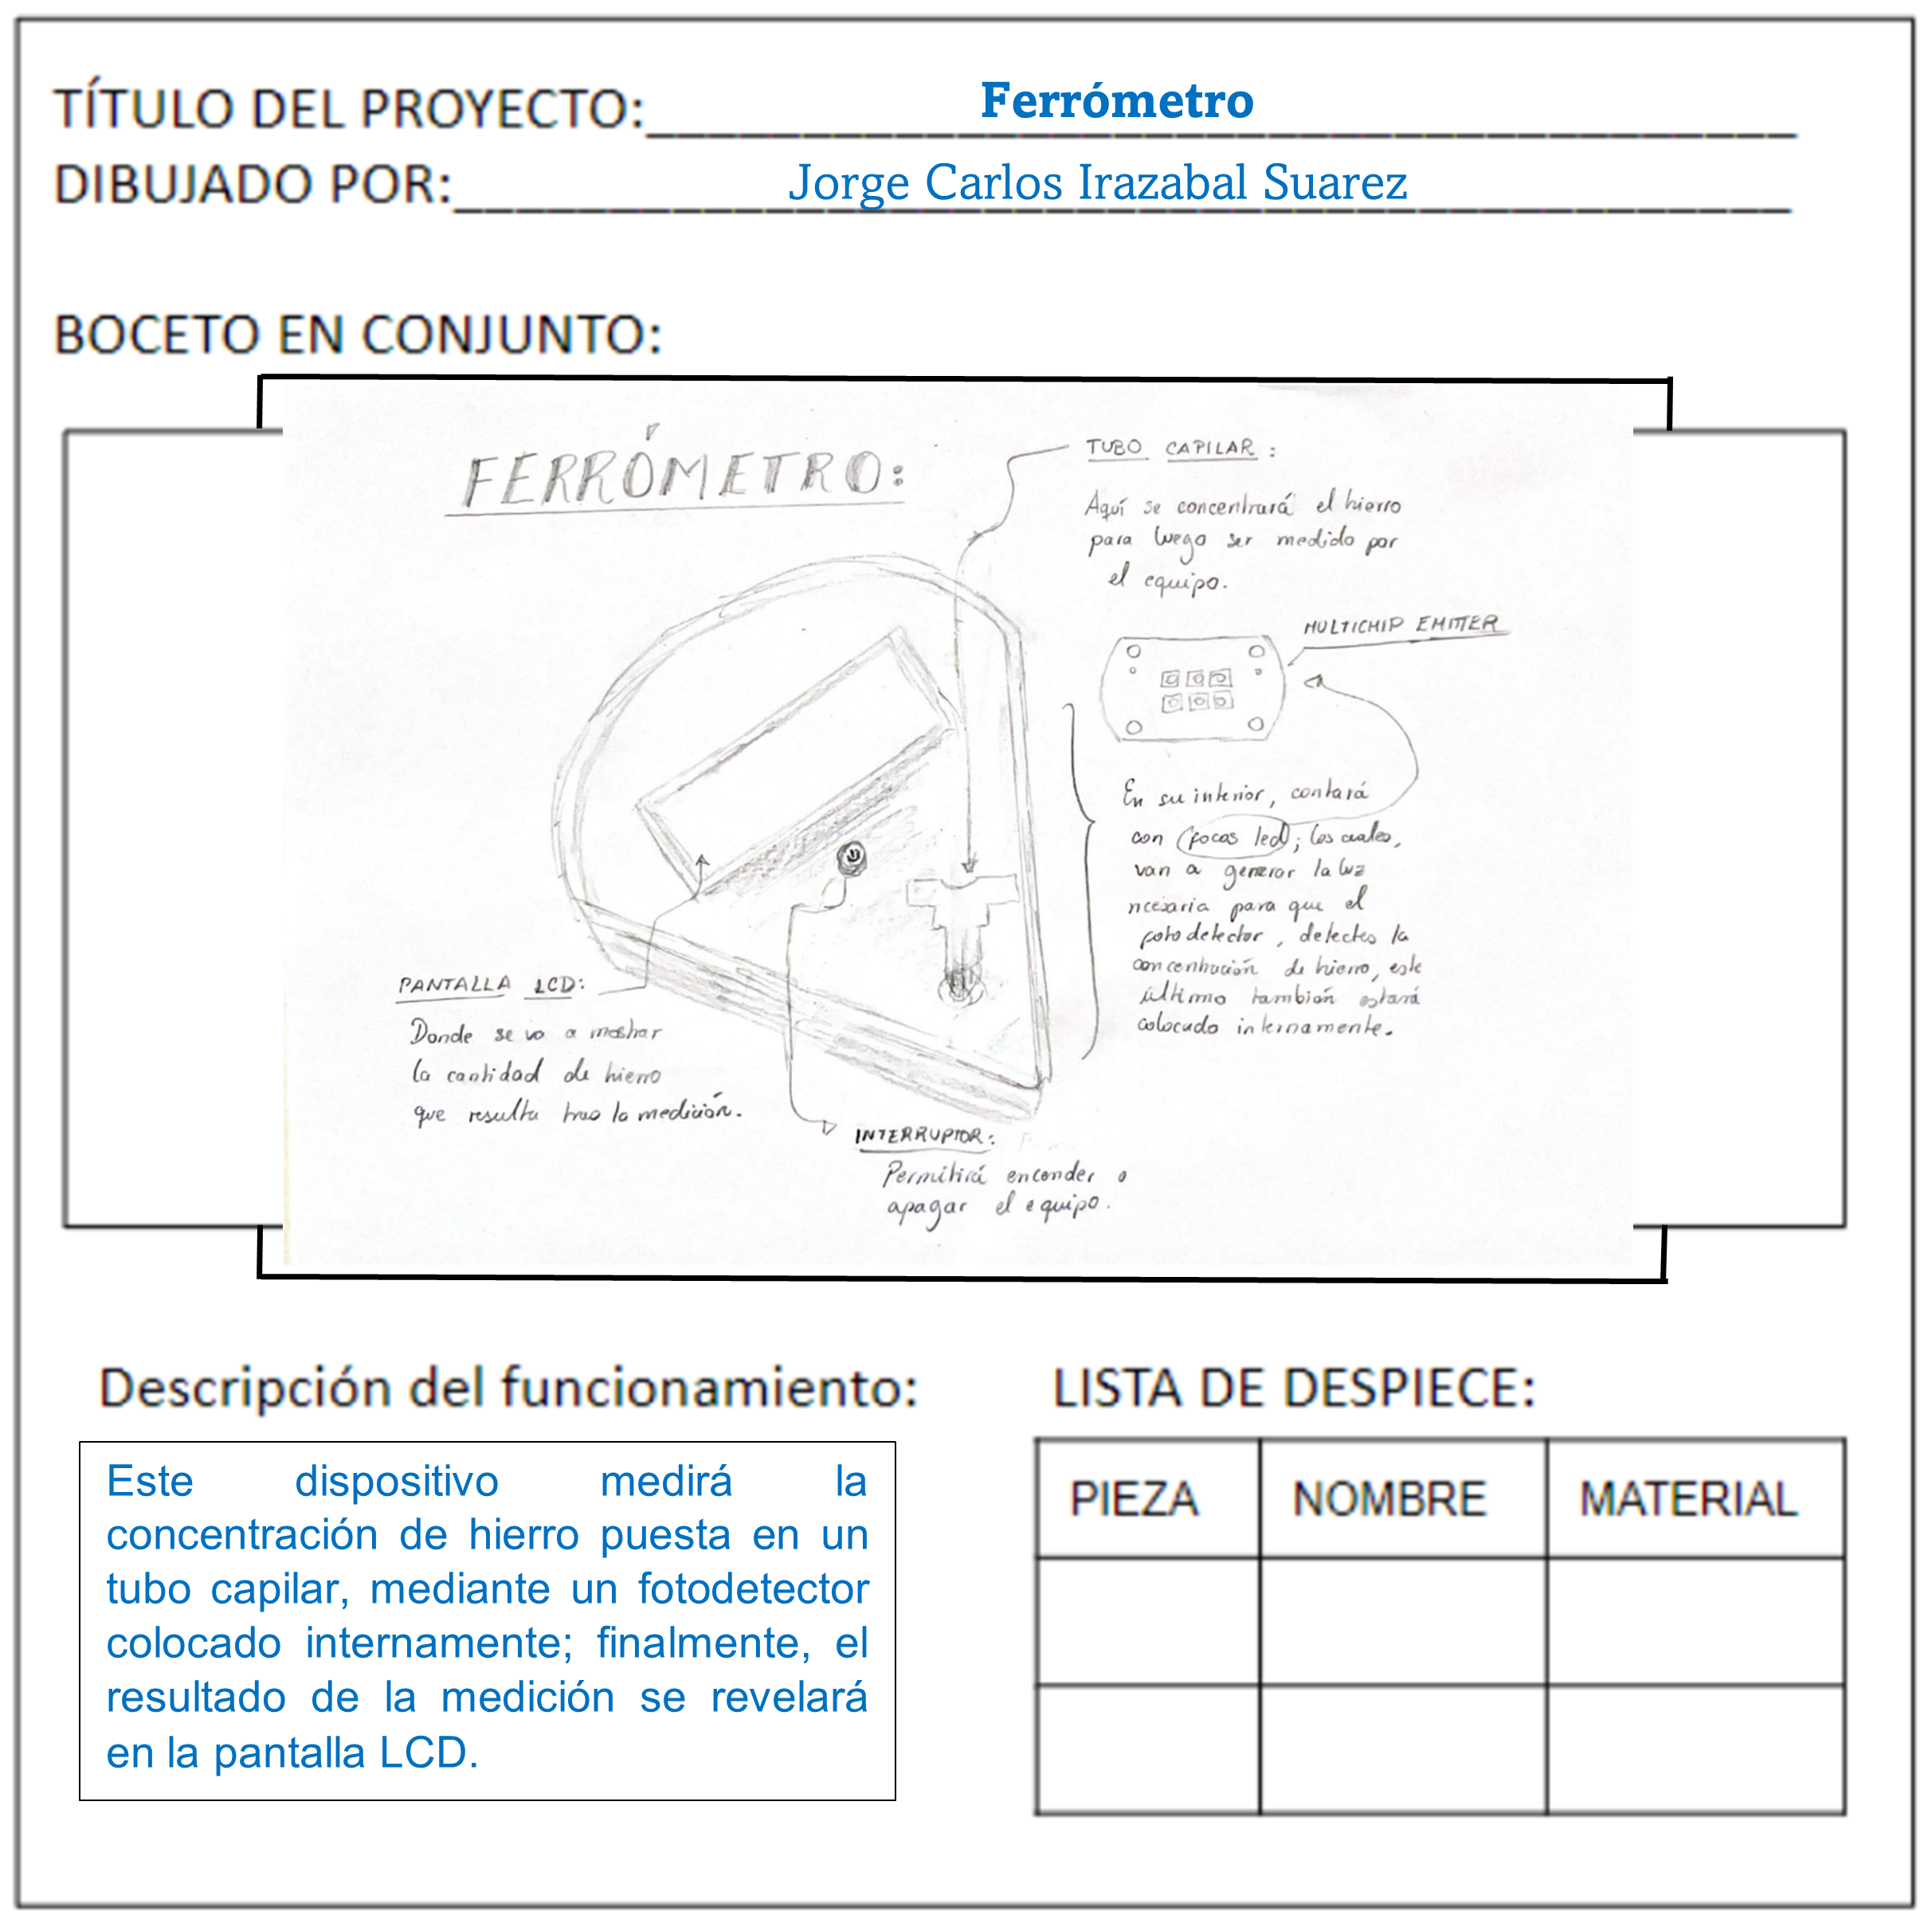 TÍTULO DEL PROYECTO: Ferrómetro
DIBUJADO POR: Jorge Carlos Irazabal Suarez
BOCETO EN CONJUNTO:
FERRÓMETRO:
TUBO CAPILAR :
Aquí se concentrará el hierro
para luego ser medido por
el equipo.
MULTICHIP EMITTER
En su interior, contará
con focos led; los cuales,
van a generar la luz
ncesaria para que el
fotodetector, detectes la
concentración de hierro, este
último también estará
colocado internamente.
PANTALLA LCD:
Donde se va a mostrar
la cantidad de hierro
que resulta tras la medición.
INTERRUPTOR:
Permitirá encender o
apagar el equipo.
Descripción del funcionamiento:
Este dispositivo medirá la
concentración de hierro puesta en un
tubo capilar, mediante un fotodetector
colocado internamente; finalmente, el
resultado de la medición se revelará
en la pantalla LCD.
LISTA DE DESPIECE:
PIEZA NOMBRE MATERIAL